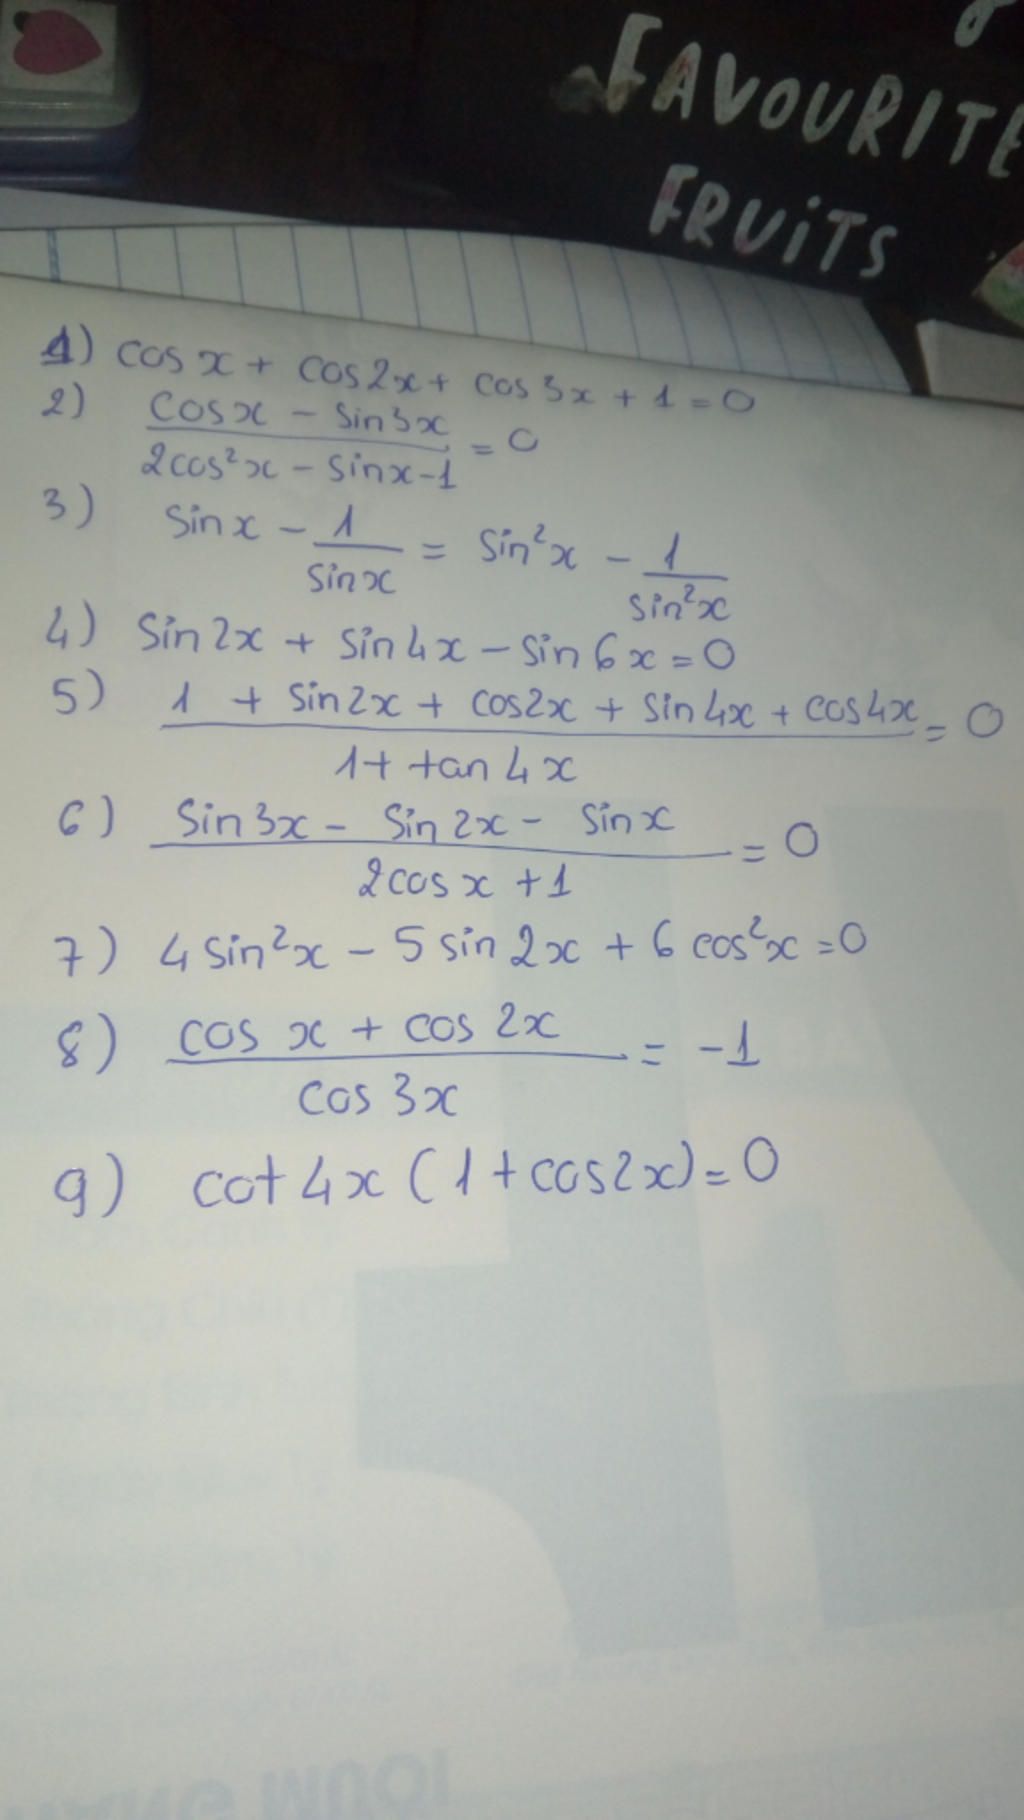 FAVOURITE
FRUiTS
1) cos x + cos2x + cos3x + 1 = 0
2) (cosx - sin3x)/(2cos²x - sinx - 1) = 0
3) sinx - 1/sinx = sin²x - 1/sin²x
4) sin2x + sin4x - sin6x = 0
5) (1 + sin2x + cos2x + sin4x + cos4x)/(1 + tan4x) = 0
6) (sin3x - sin2x - sinx)/(2cosx + 1) = 0
7) 4sin²x - 5sin2x + 6cos²x = 0
8) (cos x + cos 2x)/(cos 3x) = -1
9) cot4x (1 + cos2x) = 0